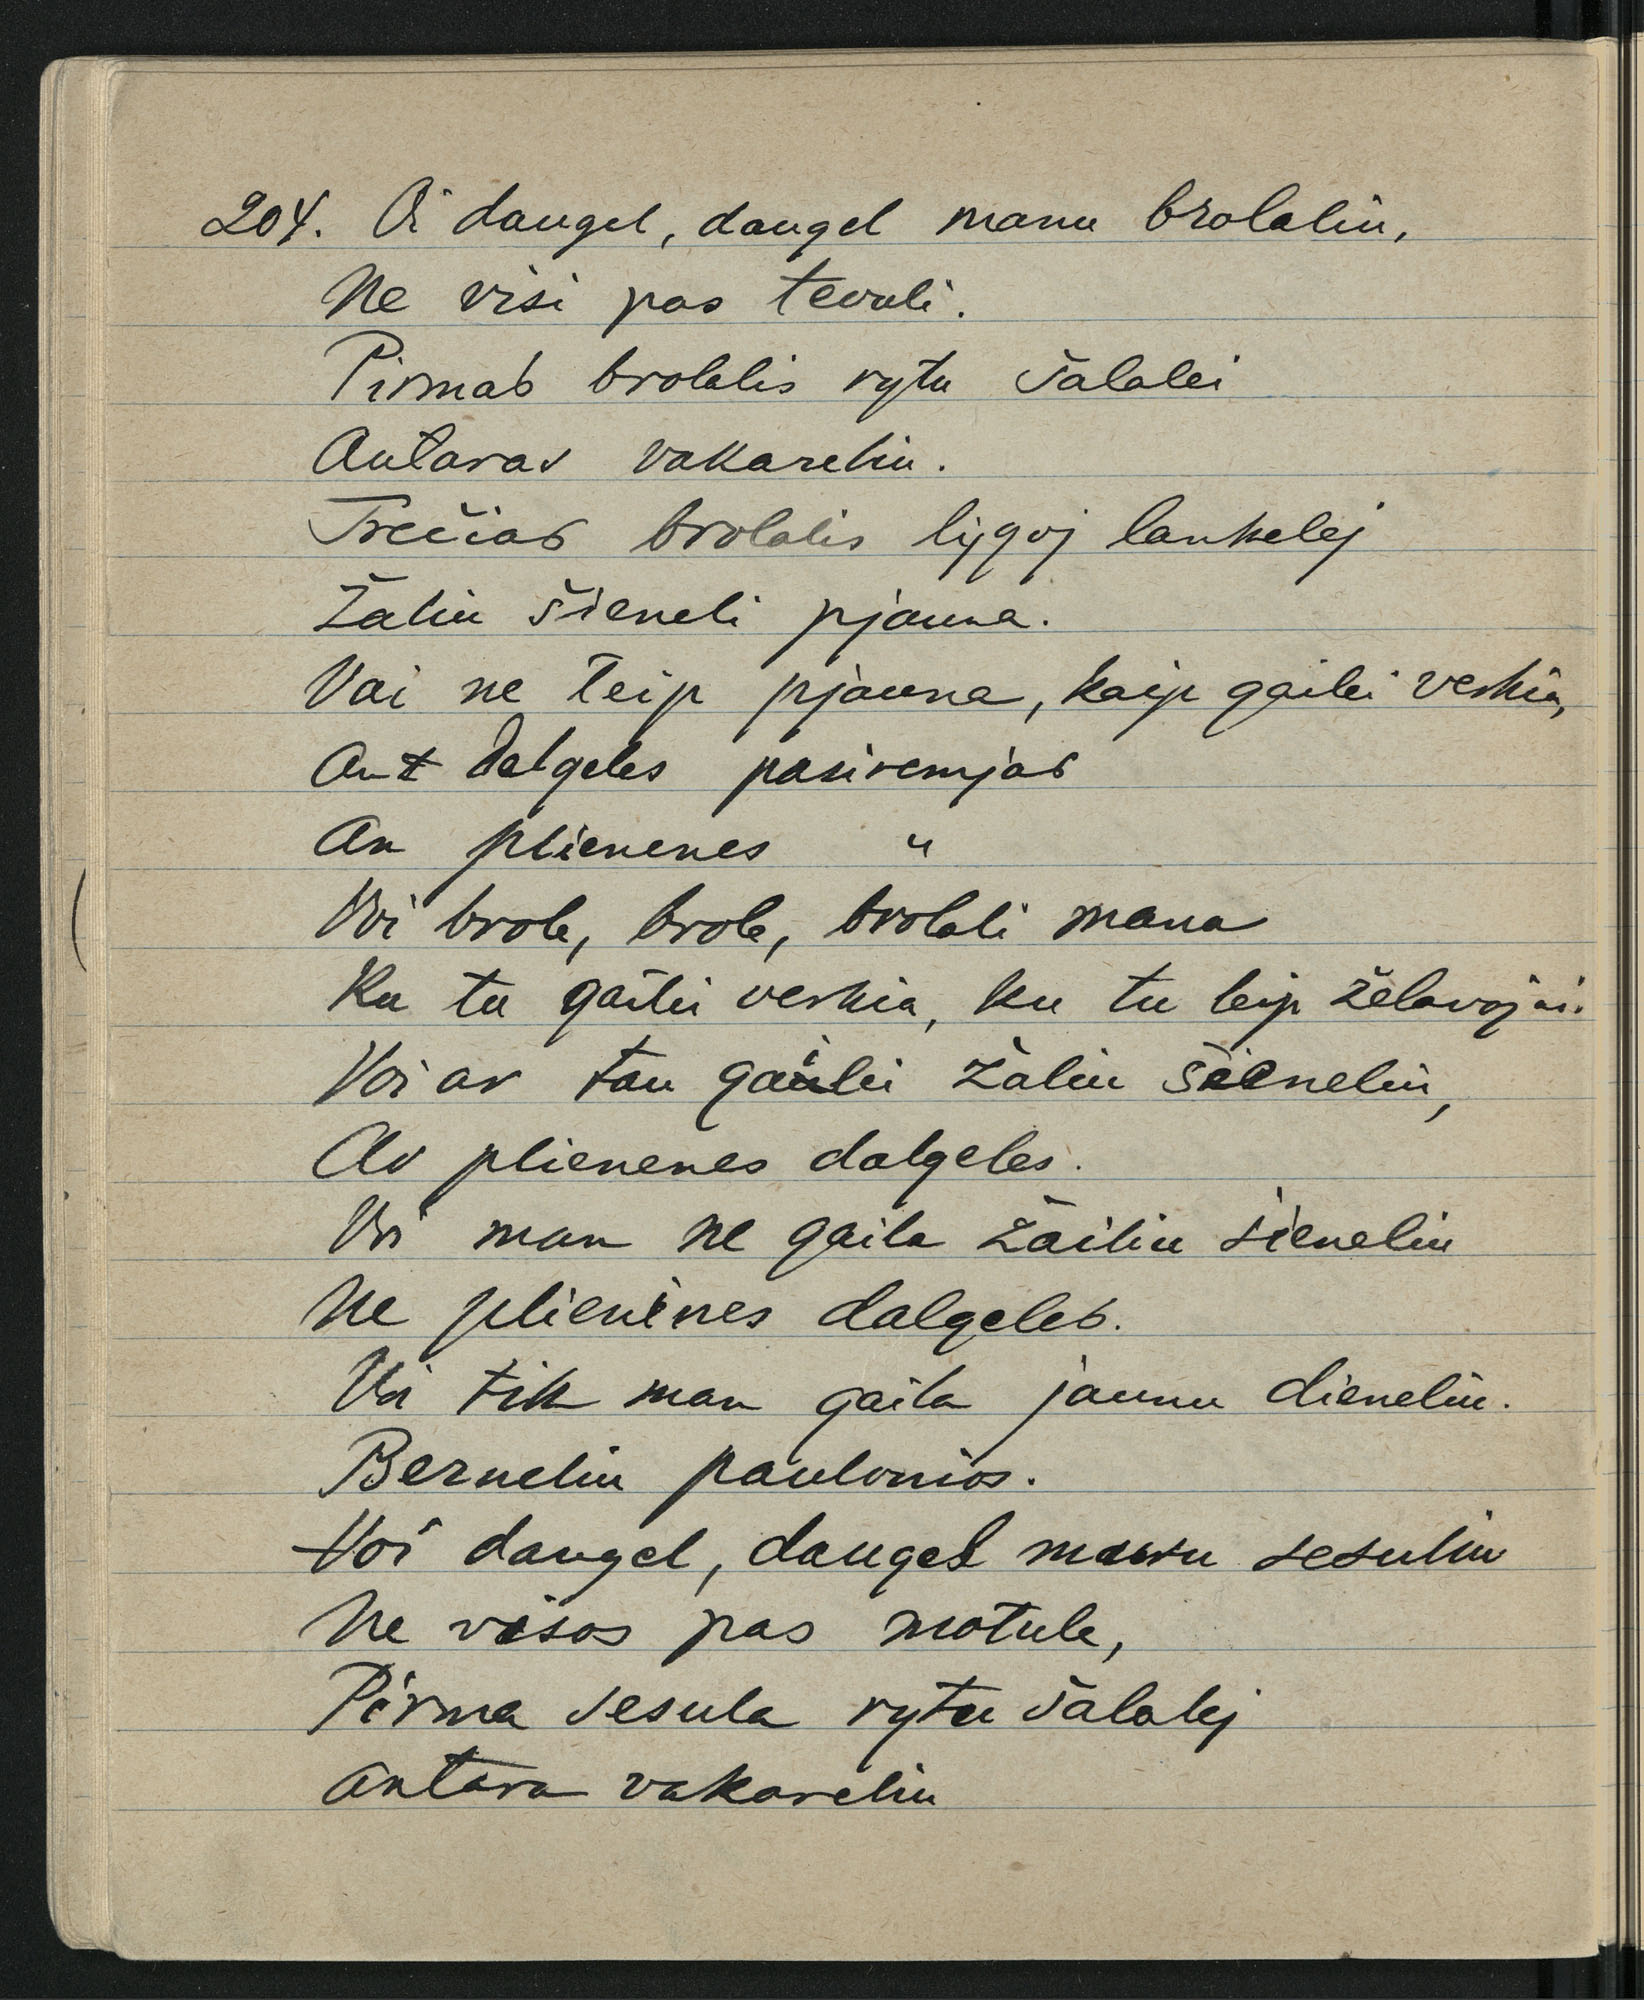 204. Oi daugel, daugel manu brolaliu,
Ne visi pas tevali.
Pirmas brolalis rytu šalalei
Antaras vakareliu.
Trečias brolalis lygoj lankelej
Žaliu šieneli pjauna.
Vai ne teip pjauna, kaip gailei verkia,
Ant dalgeles pasiremjas
An plienenes "
Voi brole, brole, brolali mana
Ku tu gailei verkia, ku tu teip želavojai.
Voi ar tau gailei žaliu šieneliu,
Ar plienenes dalgeles.
Voi man ne gaila žailiu sieneliu
Ne plienines dalgeles.
Voi tik man gaila jaunu dieneliu.
Berneliu paulonios.
Voi daugel, daugel manu seseliu
Ne visos pas motule,
Pirma sesula rytu šalalej
Antara vakareliu